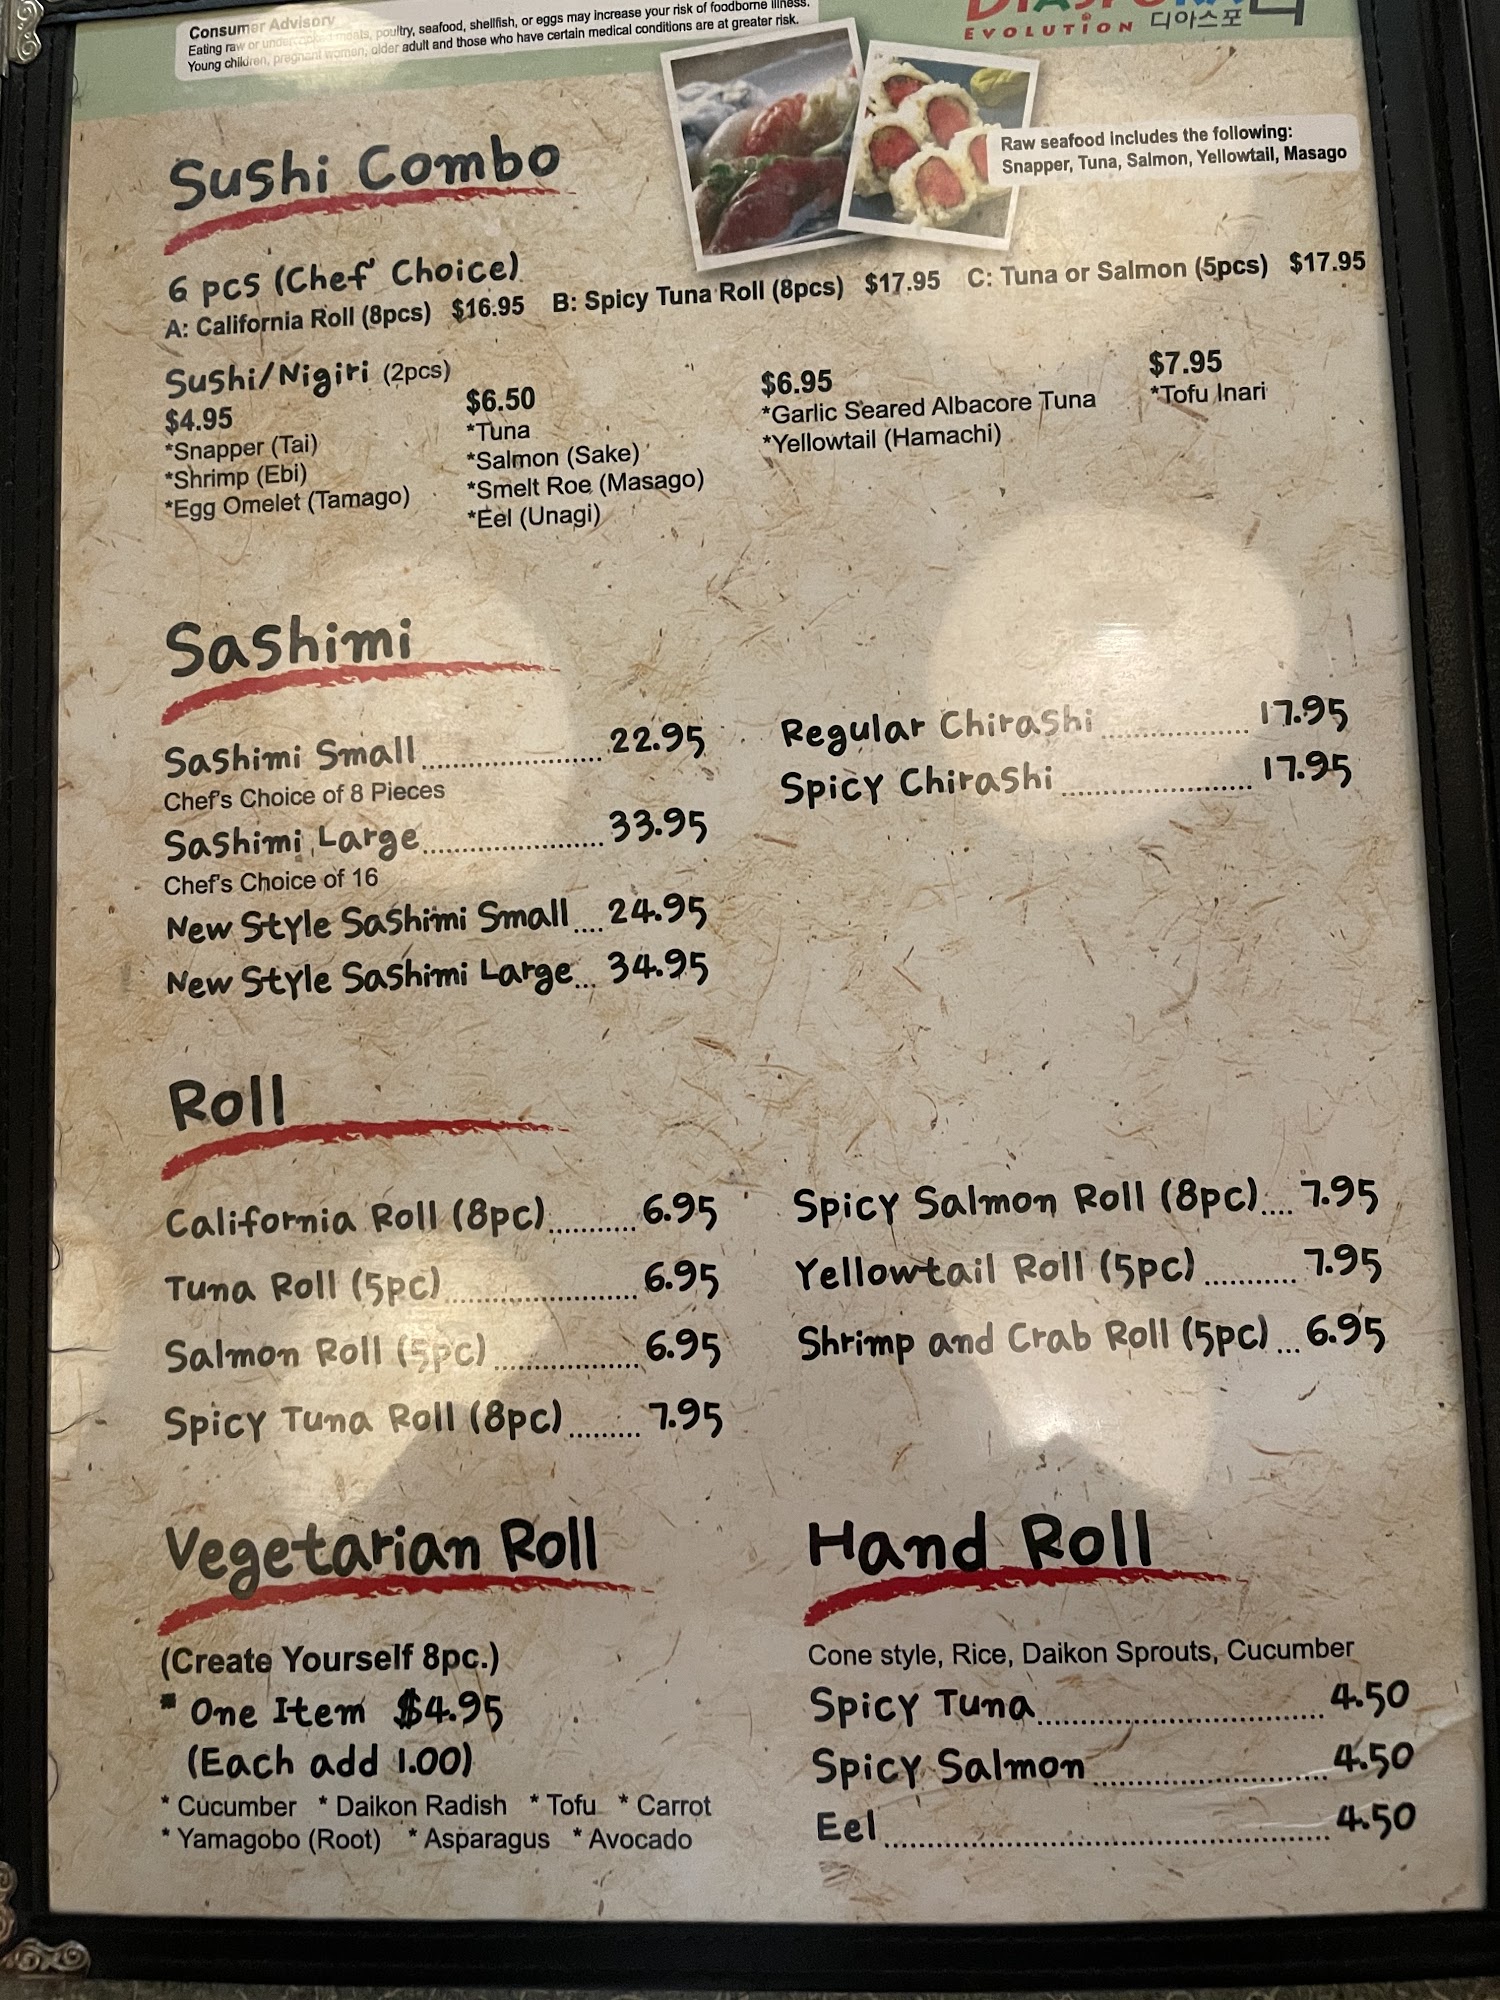 Consumer Advisory
Eating raw or undercooked meats, poultry, seafood, shellfish, or eggs may increase your risk of foodborne illness.
Young children, pregnant women, older adult and those who have certain medical conditions are at greater risk.
EVOLUTION 디아스포
Raw seafood includes the following:
Snapper, Tuna, Salmon, Yellowtail, Masago
Sushi Combo
6 pcs (Chef' Choice)
A: California Roll (8pcs) $16.95 B: Spicy Tuna Roll (8pcs) $17.95 C: Tuna or Salmon (5pcs) $17.95
Sushi/Nigiri (2pcs)
$4.95
*Snapper (Tai)
*Shrimp (Ebi)
*Egg Omelet (Tamago)
$6.50
*Tuna
*Salmon (Sake)
*Smelt Roe (Masago)
*Eel (Unagi)
$6.95
*Garlic Seared Albacore Tuna
*Yellowtail (Hamachi)
$7.95
*Tofu Inari
Sashimi
Sashimi Small..................... 22.95
Chef's Choice of 8 Pieces
Sashimi Large..................... 33.95
Chef's Choice of 16
New Style Sashimi Small.... 24.95
New Style Sashimi Large... 34.95
Regular Chirashi................. 17.95
Spicy Chirashi...................... 17.95
Roll
California Roll (8pc).......... 6.95
Tuna Roll (5pc)...................... 6.95
Salmon Roll (5pc)................ 6.95
Spicy Tuna Roll (8pc)........ 7.95
Spicy Salmon Roll (8pc).... 7.95
Yellowtail Roll (5pc)........... 7.95
Shrimp and Crab Roll (5pc)... 6.95
Vegetarian Roll
(Create Yourself 8pc.)
* One Item $4.95
(Each add 1.00)
* Cucumber * Daikon Radish * Tofu * Carrot
* Yamagobo (Root) * Asparagus * Avocado
Hand Roll
Cone style, Rice, Daikon Sprouts, Cucumber
Spicy Tuna................................ 4.50
Spicy Salmon.......................... 4.50
Eel.................................................. 4.50